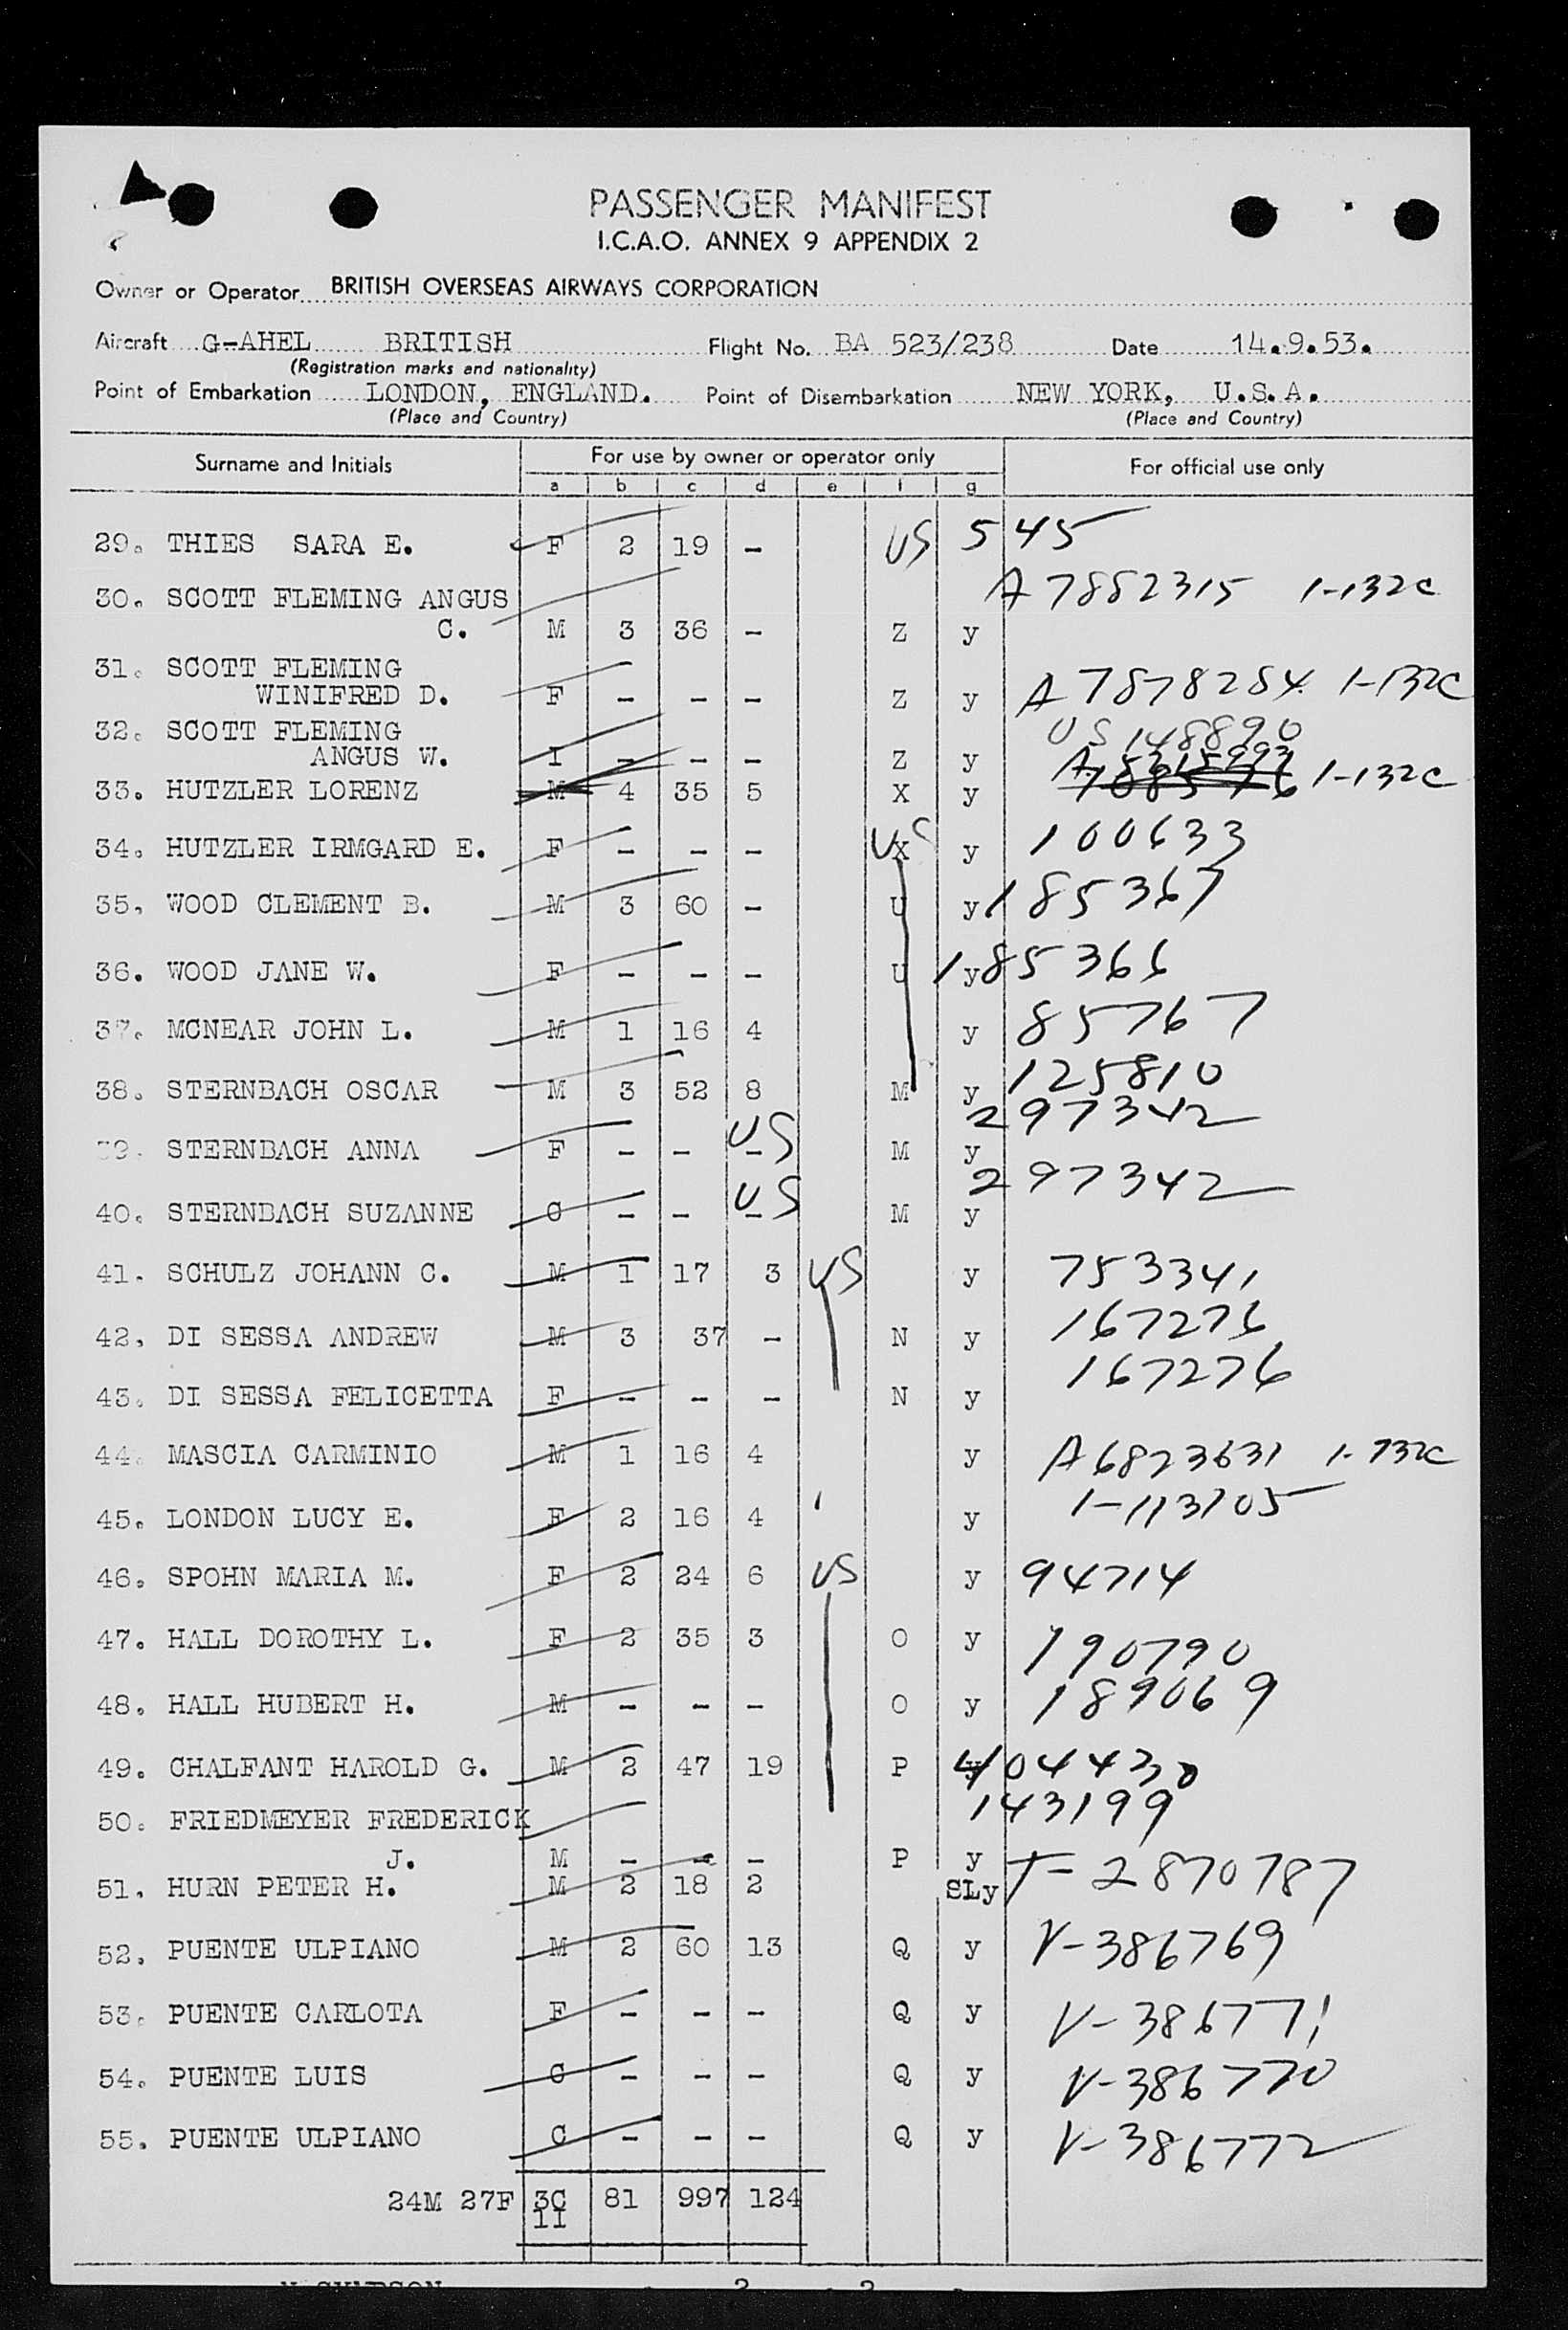 PASSENGER MANIFEST
I.C.A.O. ANNEX 9 APPENDIX 2
Owner or Operator BRITISH OVERSEAS AIRWAYS CORPORATION
Aircraft G-AHEL BRITISH Flight No. BA 523/238 Date 14.9.53.
(Registration marks and nationality)
Point of Embarkation LONDON, ENGLAND. Point of Disembarkation NEW YORK, U.S.A.
(Place and Country) (Place and Country)
Surname and Initials For use by owner or operator only For official use only
a b c d e f g
29. THIES SARA E. F 2 19 - US 545
30. SCOTT FLEMING ANGUS A7882315 1-132C
C. M 3 36 - Z y
31. SCOTT FLEMING
WINIFRED D. F - - - Z y A7878284 1-132C
32. SCOTT FLEMING US 148890
ANGUS W. I - - - Z y
33. HUTZLER LORENZ M 4 35 5 X y 1-132C
34. HUTZLER IRMGARD E. F - - - US X y 100633
35. WOOD CLEMENT B. M 3 60 - U y 185367
36. WOOD JANE W. F - - - U y 185366
37. MCNEAR JOHN L. M 1 16 4 y 85767
38. STERNBACH OSCAR M 3 52 8 M y 125810
297342
39. STERNBACH ANNA F - - - US M y
297342
40. STERNBACH SUZANNE C - - - US M y
41. SCHULZ JOHANN C. M 1 17 3 US y 753341
42. DI SESSA ANDREW M 3 37 - N y 167276
167276
43. DI SESSA FELICETTA F - - - N y
44. MASCIA CARMINIO M 1 16 4 y A6823631 1-132C
45. LONDON LUCY E. F 2 16 4 y 1-113705
46. SPOHN MARIA M. F 2 24 6 US y 94714
47. HALL DOROTHY L. F 2 35 3 O y 190790
48. HALL HUBERT H. M - - - O y 189069
49. CHALFANT HAROLD G. M 2 47 19 P y 404430
50. FRIEDMEYER FREDERICK 143199
J. M - - - P y
51. HURN PETER H. M 2 18 2 SLy T-2870787
52. PUENTE ULPIANO M 2 60 13 Q y V-386769
53. PUENTE CARLOTA F - - - Q y V-386771
54. PUENTE LUIS C - - - Q y V-386770
55. PUENTE ULPIANO C - - - Q y V-386772
24M 27F 3C 81 997 124
1I